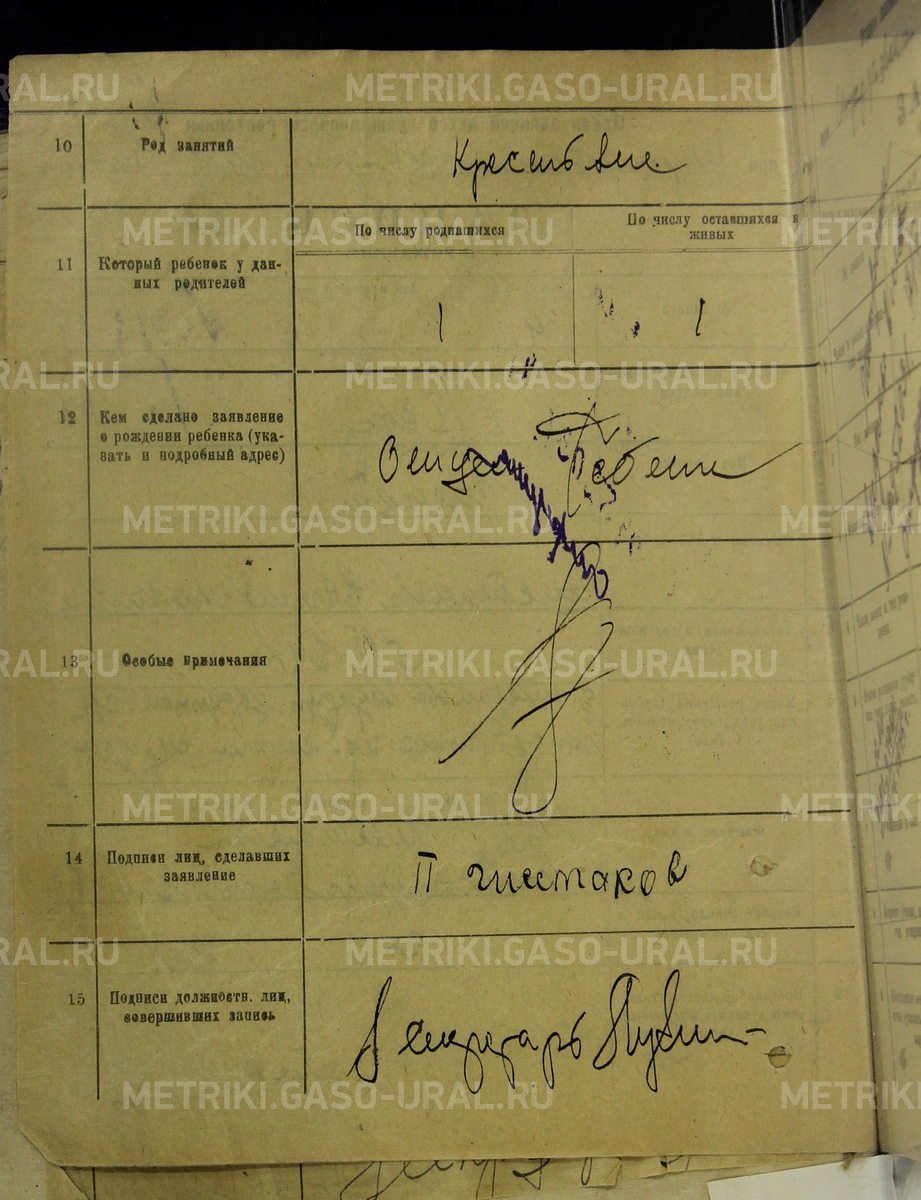 METRIKI.GASO-URAL.RU
10 Род занятий
Крестьяне.
11 Который ребенок у дан-
ных родителей
По числу родившихся
По числу оставшихся в
живых
1
1
12 Кем сделано заявление
о рождении ребенка (ука-
зать и подробный адрес)
Отцом Ребенка
13 Особые примечания
14 Подписи лиц, сделавших
заявление
П чистяков
15 Подписи должностн. лиц,
совершивших запись
Секретарь